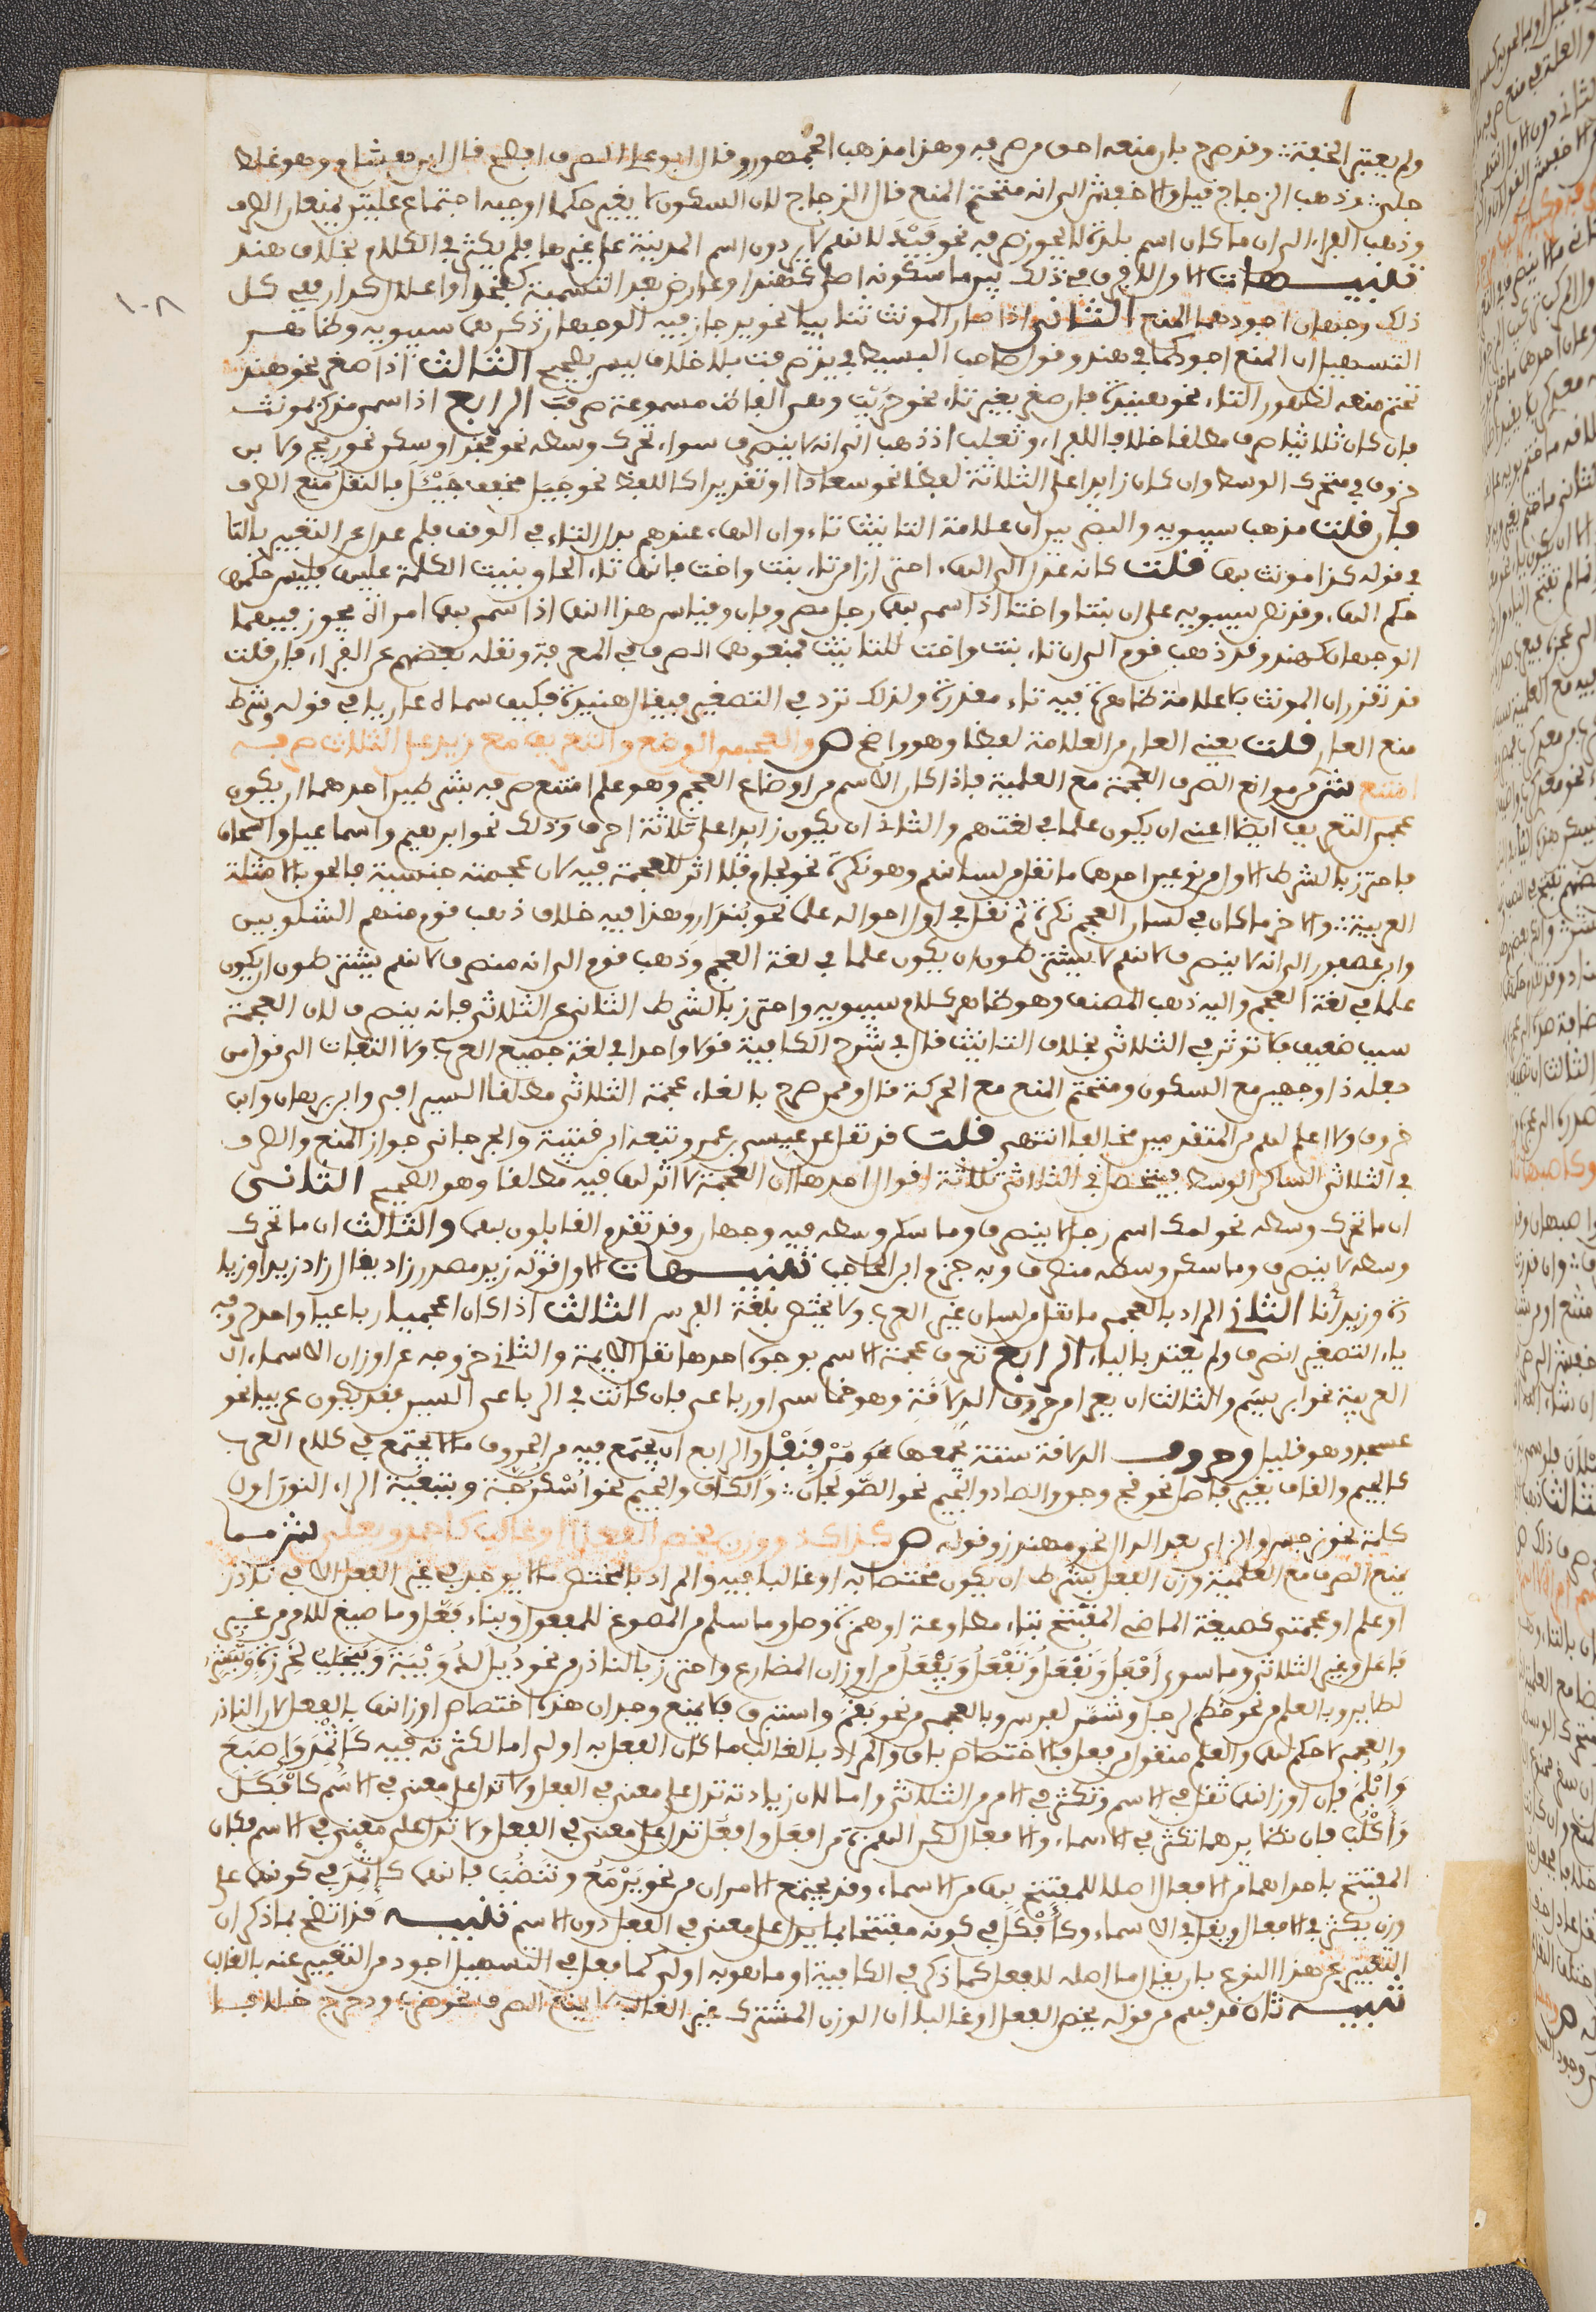 ولم يعتبر الخفة وقد صرح بان منعه احق من صرفه وهذا مذهب الجمهور وقال ابو علي الصرف افصح قال ابن هشام وهو غلط
جلي وذهب الزجاج قيل والاخفش الى انه متحتم المنع قال الزجاج لان السكون لا يغير حكما اوجبه اجتماع علتين يمنعان الصرف
وذهب الفراء الى ان ما كان اسم بلدة لا يجوز صرفه نحو فيد لانهم لا يرددون اسم المدينة على غيرها فلم يكثر في الكلام بخلاف هند
تنبيهات الاول لا فرق في ذلك بين ما سكونه اصلي كهند او عارض بعد التسمية كفخذ او اعلال كدار ففي كل
ذلك وجهان اجودهما المنع الثاني اذا صار المونث ثنائيا نحو يد جاز فيه الوجهان ذكرهما سيبويه وظاهر
التسهيل ان المنع اجود كما في هند وقول صاحب البسيط في يد صرفت بلا خلاف ليس بصحيح الثالث اذا صغر نحو هند
تحتم منعه لظهور التاء نحو هنيدة فان صغر بغير تاء نحو حريب وهي الفاظ مسموعة صرفت الرابع اذا سمي مذكر بمونث
فان كان ثلاثيا صرف مطلقا خلافا للفراء وثعلب اذ ذهبا الى انه لا ينصرف سواء تحرك وسطه نحو فخذ او سكن نحو ريح ولابن
خروف في متحرك الوسط وان كان زايدا على الثلاثة لفظا نحو سعاد او تقديرا كاللفظ نحو جيل مخفف جيئل بالنقل منع الصرف
فان قلت مذهب سيبويه والبصريين ان علامة التانيث تاء وان الهاء عندهم بدل التاء في الوقف فلم عدل عن التعبير بالتا
في قوله كذا مونث بهاء قلت كانه عدل الى الهاء احترازا من تاء بنت واخت فانها تاء الحاق بنيت الكلمة عليها فليس حكمها
حكم الهاء وقد نص سيبويه على ان بنتا واختا اذا سمي بهما رجل مصروفان وقياس هذا انها اذا سمي بها امراة يجوز فيهما
الوجهان كهند وقد ذهب قوم الى ان تاء بنت واخت للتانيث فمنعوهما الصرف في المعرفة ونقله بعضهم عن الفراء فان قلت
قد تقرر ان المونث بلا علامة ظاهرة فيه تاء مقدرة ولذلك ترد في التصغير فيقال هنيدة فكيف سماه عاريا في قوله وشرط
منع العار قلت يعني العار من العلامة لفظا وهو واضح ص والعجمي الوضع والتعريف مع زيد على الثلاث صرفه
امتنع ش من موانع الصرف العجمة مع العلمية فاذا كان الاسم من اوضاع العجم وهو علم امتنع صرفه بشرطين احدهما ان يكون
عجمي التعريف ايضا اعني ان يكون علما في لغتهم والثاني ان يكون زايدا على ثلاثة احرف وذلك نحو ابرهيم واسماعيل واسحاق
فاحترز بالشرط الاول من نوعين احدهما ما نقل من لسانهم وهو نكرة نحو لجام فلا اثر للعجمة فيه لان عجمته جنسية فالحق بالامثلة
العربية والاخر ما كان في لسان العجم نكرة ثم نقل في اول احواله علما نحو بندار وهذا فيه خلاف ذهب قوم منهم الشلوبين
وابن عصفور الى انه لا ينصرف لانهم لا يشترطون ان يكون علما في لغة العجم وذهب قوم الى انه منصرف لانهم يشترطون ان يكون
علما في لغة العجم واليه ذهب المصنف وهو ظاهر كلام سيبويه واحترز بالشرط الثاني عن الثلاثي فانه ينصرف لان العجمة
سبب ضعيف فلا توثر في الثلاثي بخلاف التانيث قال في شرح الكافية قولا واحدا في لغة جميع العرب ولا التفات الى قول من
جعله ذا وجهين مع السكون ومتحتم المنع مع الحركة قال وممن صرح بالغاء عجمة الثلاثي مطلقا السيرافي وابن برهان وابن
خروف ولا اعلم لهم من المتقدمين مخالفا انتهى قلت قد نقل عن عيسى بن عمر وتبعه ابن قتيبة والجرجاني جواز المنع والصرف
في الثلاثي الساكن الوسط فيتحصل في الثلاثي ثلاثة اقوال احدها ان العجمة لا اثر لها فيه مطلقا وهو الصحيح الثاني
ان ما تحرك وسطه نحو لمك اسم رجل لا ينصرف وما سكن وسطه فيه وجهان وقد تقدم القايلون بها والثالث ان ما تحرك
وسطه لا ينصرف وما سكن وسطه منصرف وبه جزم ابن الحاجب تنبيهات الاول قوله زيد مصدر زاد يقال زاد زيدا وزيا
دة وزيدانا الثاني المراد بالعجمي ما نقل من لسان غير العرب ولا يختص بلغة الفرس الثالث اذا كان اعجميا رباعيا واحد حروفه
ياء التصغير انصرف ولم يعتد بالياء الرابع تعرف عجمة الاسم بوجوه احدها نقل الايمة والثاني خروجه عن اوزان الاسماء
العربية نحو ابريسم والثالث ان يعرا من حروف الذلاقة وهو خماسي او رباعي فان كانت في الرباعي السين فقد يكون عربيا نحو
عسجد وهو قليل وحروف الذلاقة ستة يجمعها نحو مر بنفل والرابع ان يجتمع فيه من الحروف ما لا يجتمع في كلام العرب
كالجيم والقاف بغير فاصل نحو قج وجق والصاد والجيم نحو الصولجان والكاف والجيم نحو اسكرجة وبتبعية الراء النون اول
كلمة نحو نرجس والزاي بعد الدال نحو مهندز وقوله ص كذاك ذو وزن يخص الفعلا او غالب كاحمد ويعلى ش مما
يمنع الصرف مع العلمية وزن الفعل بشرط ان يكون مختصا به او غالبا فيه والمراد بالمختص ما لا يوجد في غير الفعل الا في نادر
او علم او عجمي كصيغة الماضي المفتتح بتاء مطاوعة او همزة وصل وما سلم من المصوغ للمفعول وبناء فعل وما صيغ للامر من غير
فاعل وغير الثلاثي وما سوى افعل ونفعل وتفعل ويفعل من اوزان المضارع واحترز بالنادر من نحو دئل لدويبة وينجلب لخرزة وتبشر
لطاير وبالعلم من نحو خضم لرجل وشمر لفرس وبالعجمي من نحو بقم واستبرق فلا يمنع وجدان هذه اختصاص اوزانها بالفعل لان النادر
والعجمي لا حكم لهما والعلم منقول من فعل فالاختصاص باق والمراد بالغالب ما كان الفعل به اولى اما لكثرته فيه كاثمد واصبع
وابلم فان اوزانها تقل في الاسم وتكثر في الامر من الثلاثي واما لان زيادته تدل على معنى في الفعل ولا تدل على معنى في الاسم كافكل
واكلب فان نظايرهما تكثر في الاسماء والافعال لكن الهمزة من افعل وافعل تدل على معنى في الفعل ولا تدل على معنى في الاسم فكان
المفتتح باحداهما من الافعال اصلا للمفتتح بها من الاسماء وقد يجتمع الامران من نحو يرمع وتنضب فانهما كاثمد في كونهما على
وزن يكثر في الافعال ويقل في الاسماء وكافكل في كونه مفتتحا بما يدل على معنى في الفعل دون الاسم تنبيه قد اتضح بما ذكر ان
التعبير عن هذا النوع بان يقال اما اصله للفعل كما ذكر في الكافية او ما هو به اولى كما فعل في التسهيل اجود من التعبير عنه بالغالب
تنبيه ثان قد فهم من قوله يخص الفعل او غالب ان الوزن المشترك غير الغالب لا يمنع الصرف نحو ضرب ودحرج خلافا
١٠٨